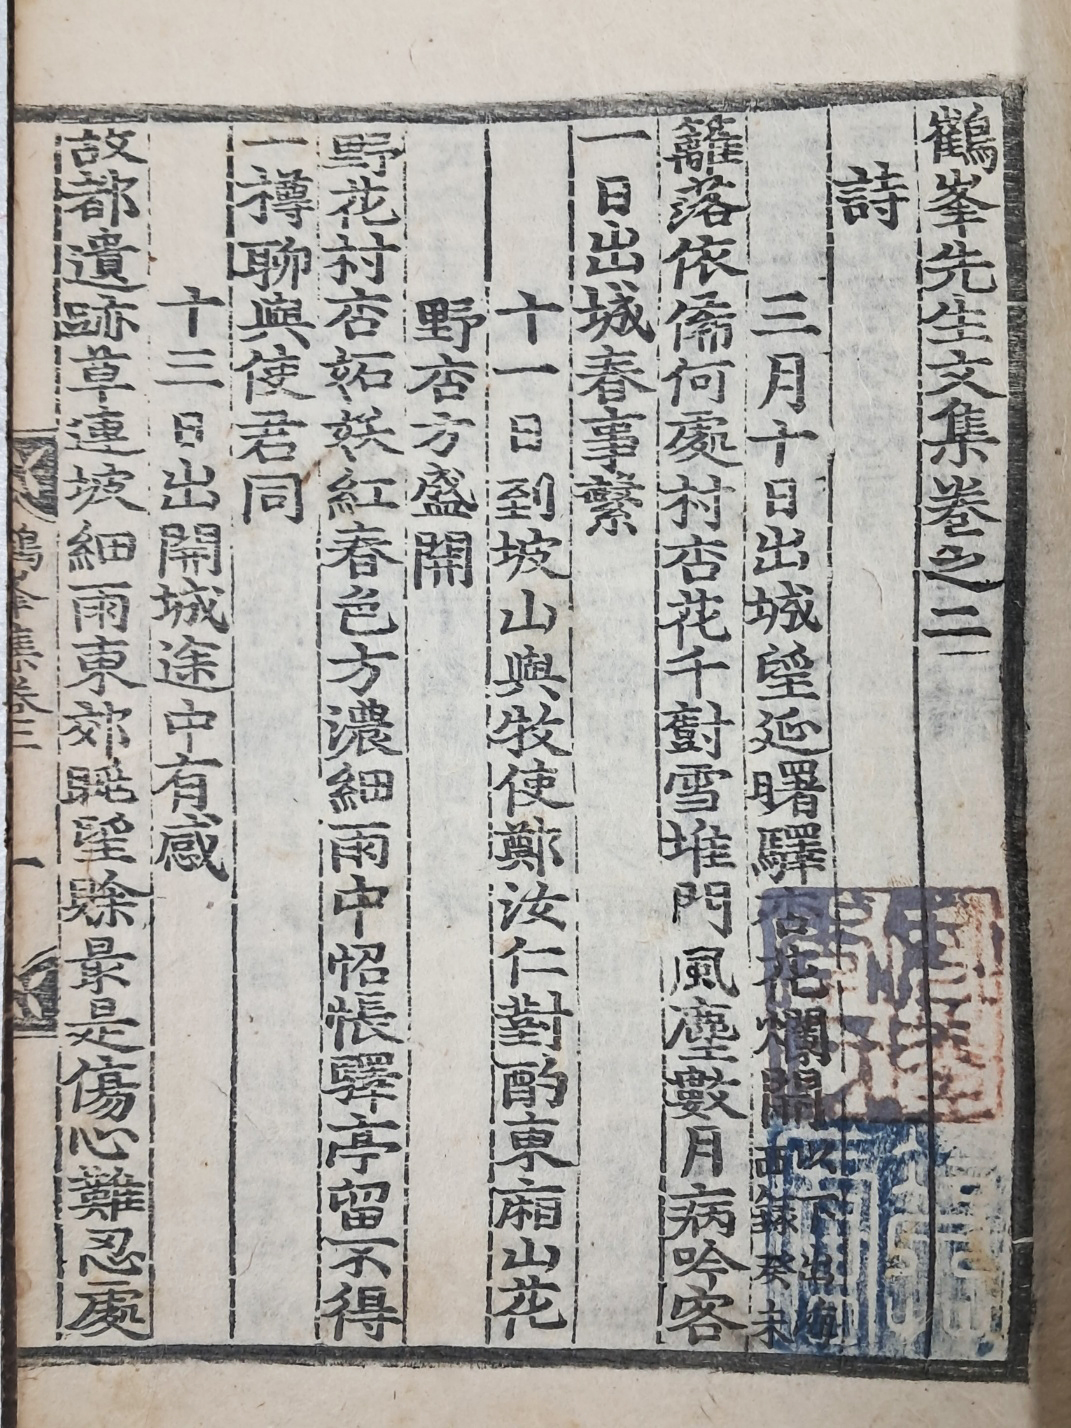 鶴峯先生文集卷之二
詩
三月十日出城望延曙驛杏花爛開以下出海西錄癸未
籬落依俙何處村杏花千對雪堆門風塵數月病吟客
一日出城春事繁
十一日到坡山與牧使鄭汝仁對酌東廂山花
野杏方盛開
野花村杏妬殘紅春色方濃細雨中怊悵驛亭留不得
一樽聊與使君同
十三日出開城途中有感
故都遺跡草連坡細雨東郊晩望賖景是傷心難忍處
鶴峯集卷二
一